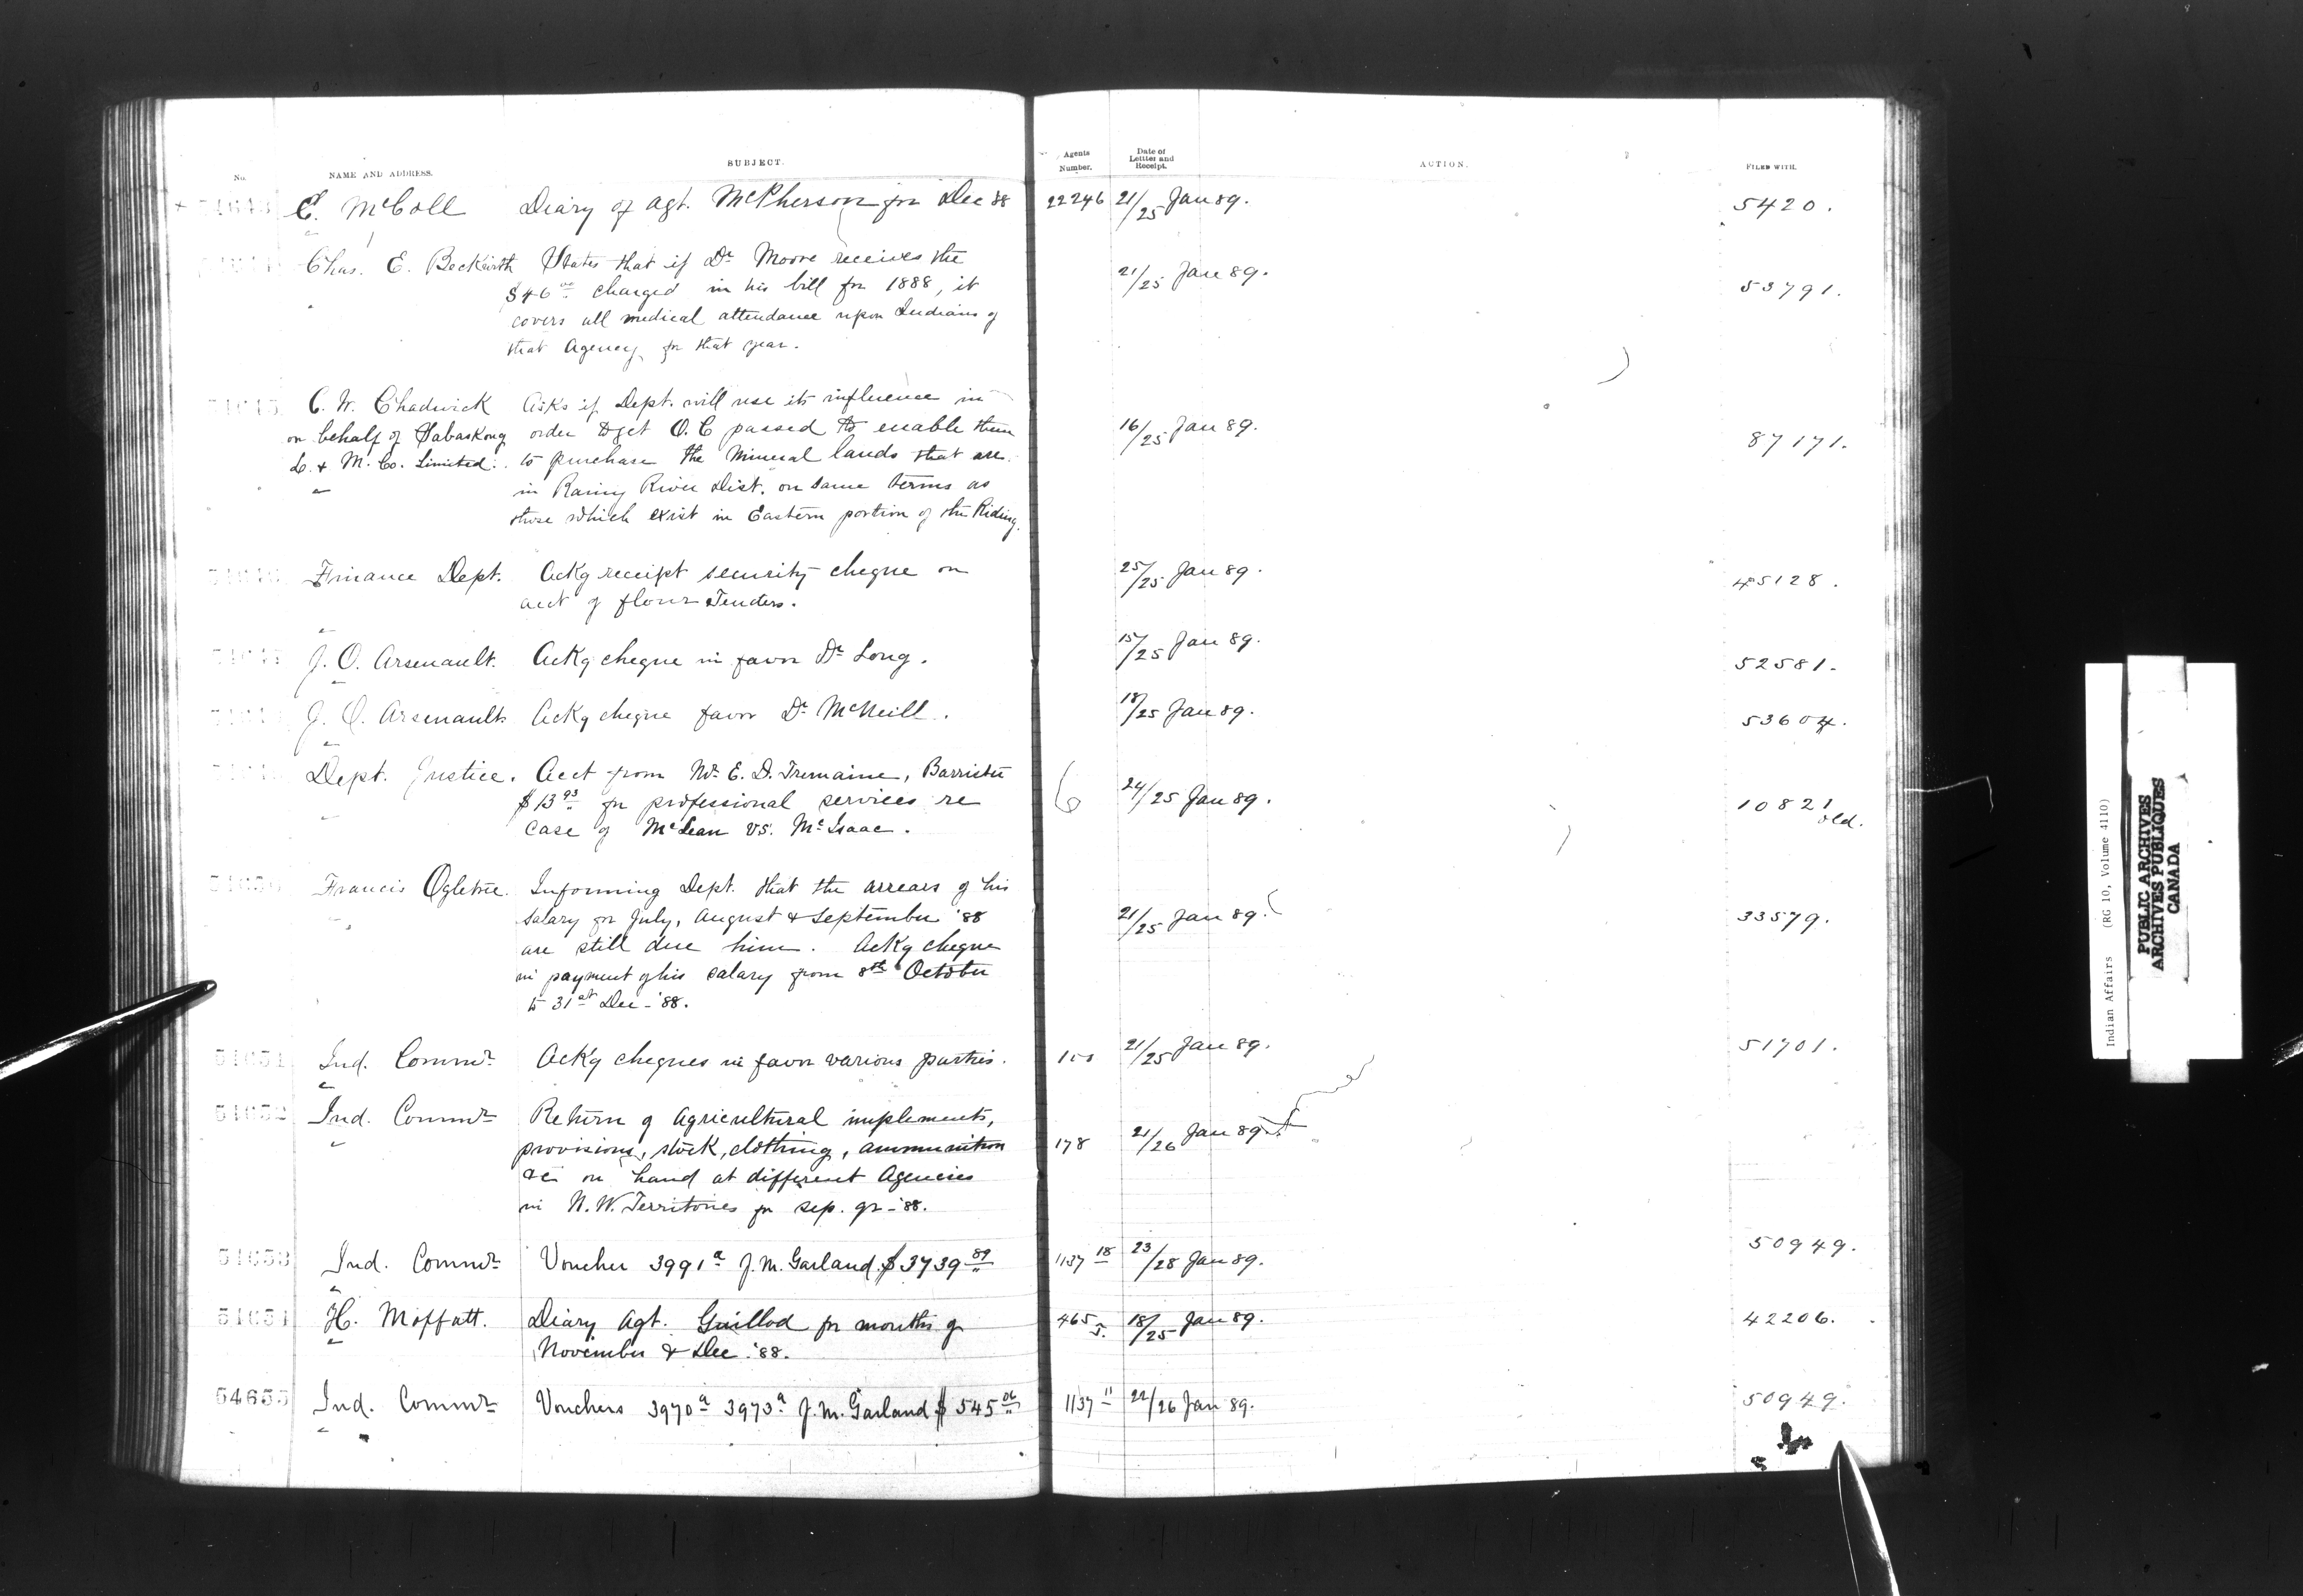 No.
NAME AND ADDRESS.
SUBJECT.
Agents Number.
Date of Lettter and Receipt.
ACTION.
FILED WITH.
54643 E. McColl Diary of Agt. McPherson for Dec 88 22246 21/25 Jan 89. 5420.
Chas. E. Beckwith States that if Dr Moore receives the 21/25 Jan 89. 53791.
$46 00 charged in his bill for 1888, it
covers all medical attendance upon Indians of
that Agency for that year.
54645 C. W. Chadwick Asks if Dept. will use its influence in 16/25 Jan 89. 87171.
on behalf of Sabaskong order to get O. C passed to enable them
L. & M. Co. Limited. to purchase the Mineral lands that are
in Rainy River Dist. on same terms as
those which exist in Eastern portion of the Riding.
54646 Finance Dept. Ackg receipt security cheque on 25/25 Jan 89. 45128.
acct of flour Tenders.
54647 J. O. Arsenault. Ackg cheque in favor Dr Long. 15/25 Jan 89. 52581.
J. O. Arsenault Ackg cheque favor Dr McNeill. 18/25 Jan 89. 53604.
Dept. Justice. Acct from Mr. E. D. Tremaine, Barrister 6 24/25 Jan 89. 10821 old.
$13 93 for professional services re
case of McLean vs. McIsaac.
54650 Francis Ogletree. Informing Dept. that the arrears of his 21/25 Jan 89. 33579.
salary for July, August & September '88
are still due him. Ackg cheque
in payment of his salary from 8th October
to 31st Dec - '88.
54651 Ind. Commr Ackg cheques in favor various parties. 21/25 Jan 89. 51701.
54652 Ind. Commr Return of Agricultural implements, 178 21/26 Jan 89.
provisions, stock, clothing, ammunition
&c on hand at different Agencies
in N. W. Territories for Sep. qr - '88.
54653 Ind. Commr Voucher 3991a J. M. Garland $3739 89 1137 18 23/28 Jan 89. 50949.
54654 H. Moffatt. Diary Agt. Guillod for months of 465 18/25 Jan 89. 42206.
November & Dec. '88.
54655 Ind. Commr Vouchers 3970a 3973a J. M. Garland $545 06 1137 11 22/26 Jan 89. 50949.
Indian Affairs (RG 10, Volume 4110)
PUBLIC ARCHIVES
ARCHIVES PUBLIQUES
CANADA